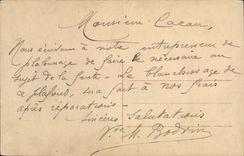 Monsieur Cacan,
Nous écrivons à notre entrepreneur de
plafonnage de faire le nécessaire au
sujet de la fente. Le blanchissage de
ce plafond, sera fait à nos frais
après réparations.
Sincères Salutations
M. Bodvin